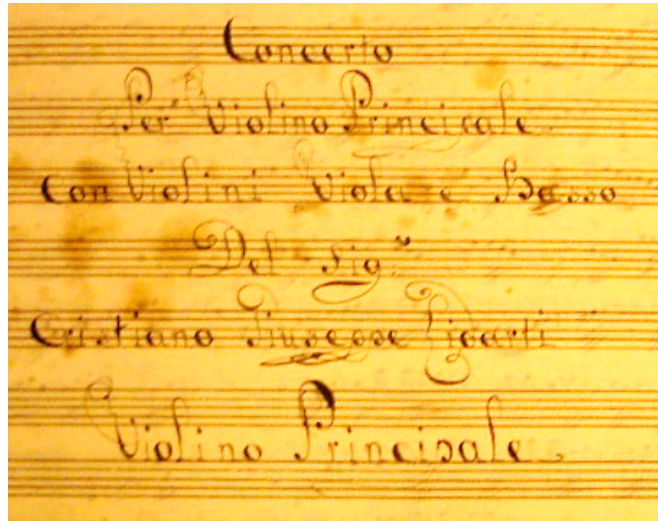 Concerto
Per Violino Principale
Con Violini Viola e Basso
Del Sig.r
Cristiano Giuseppe Lidarti
Violino Principale